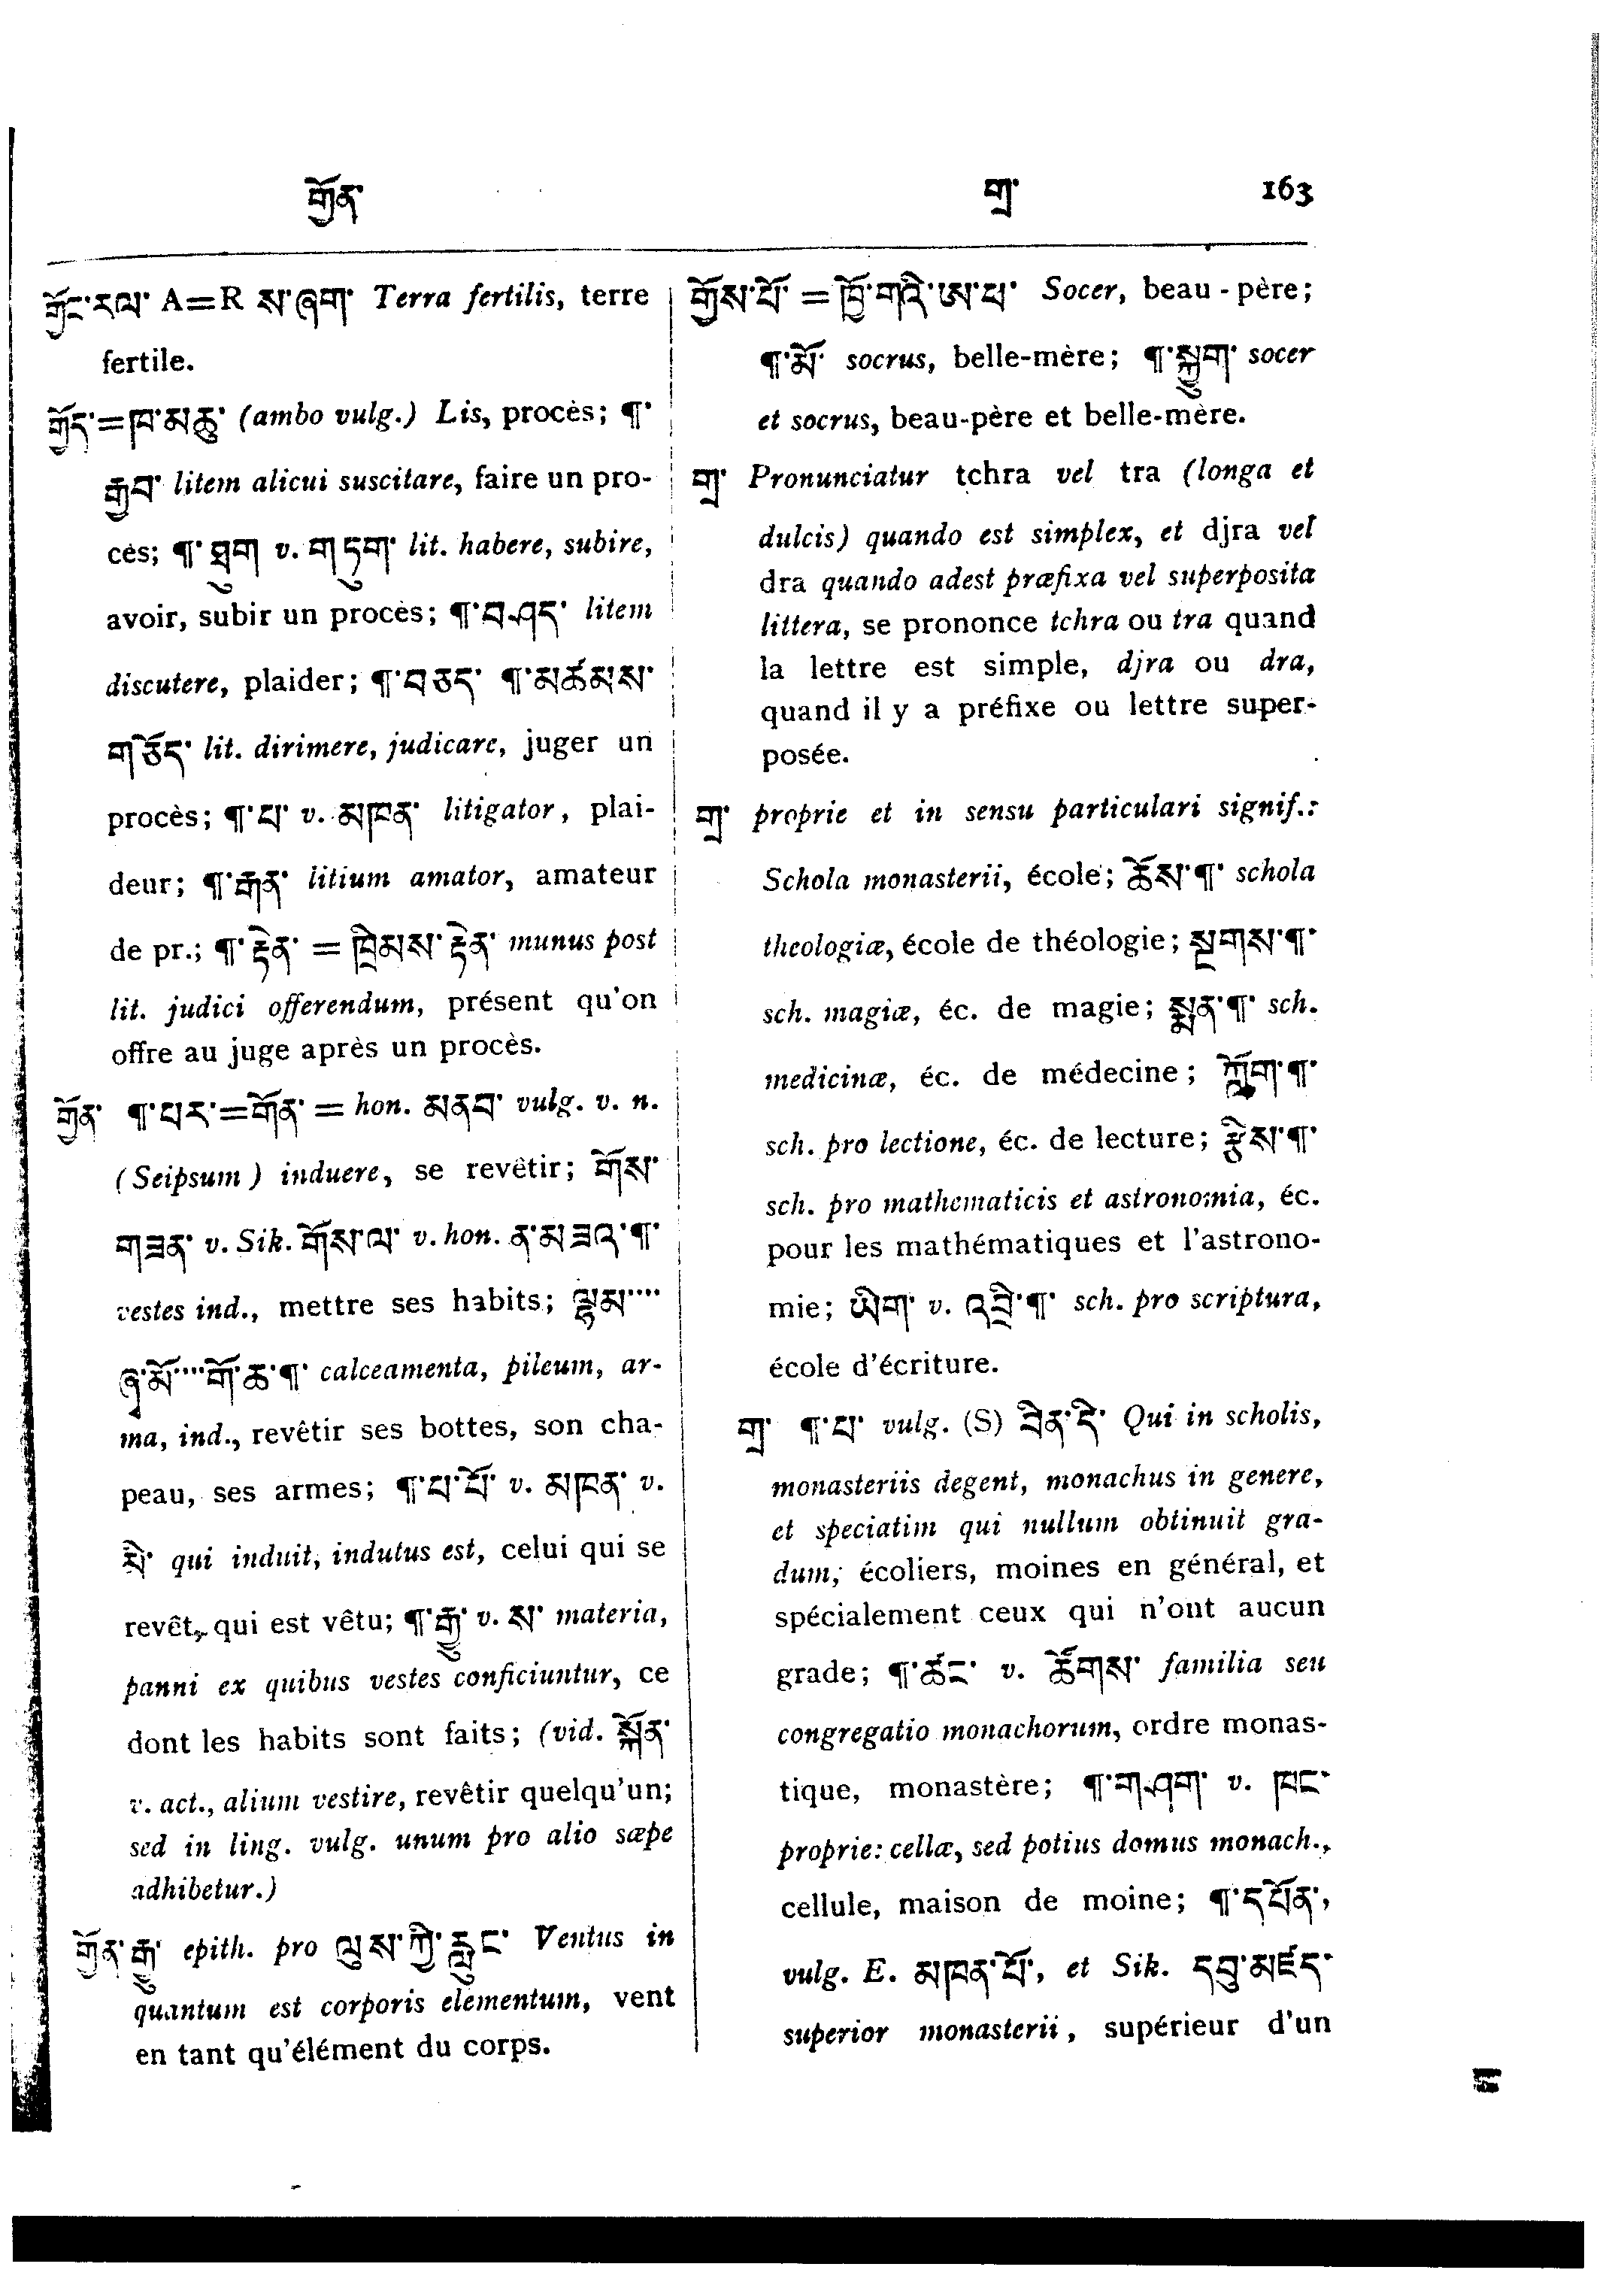 གྱོན་ གྲ་ 163
གྱོང་རལ་ A=R ས་ཞག་ Terra fertilis, terre
fertile.
གྱོད་=ཁ་མཆུ་ (ambo vulg.) Lis, procès; ¶་
རྒྱབ་ litem alicui suscitare, faire un pro-
cès; ¶་ཐུག v. གཏུག་ lit. habere, subire,
avoir, subir un procès; ¶་བཤད་ litem
discutere, plaider; ¶་བཅད་ ¶་མཚམས་
གཅོད་ lit. dirimere, judicare, juger un
procès; ¶་པ་ v. མཁན་ litigator, plai-
deur; ¶་རྒན་ litium amator, amateur
de pr.; ¶་རྟེན་ = ཁྲིམས་རྟེན་ munus post
lit. judici offerendum, présent qu'on
offre au juge après un procès.
གྱོན་ ¶་པར་=གོན་ = hon. མནབ་ vulg. v. n.
(Seipsum) induere, se revêtir; གོས་
གཟན་ v. Sik. གོས་ལ་ v. hon. ན་མཟའ་¶་
vestes ind., mettre ses habits; ལྷམ་...
ཞྭ་མོ་...གོ་ཆ་¶་ calceamenta, pileum, ar-
ma, ind., revêtir ses bottes, son cha-
peau, ses armes; ¶་པ་པོ་ v. མཁན་ v.
མི་ qui induit, indutus est, celui qui se
revêt, qui est vêtu; ¶་རྒྱུ་ v. ས་ materia,
panni ex quibus vestes conficiuntur, ce
dont les habits sont faits; (vid. སྐོན་
v. act., alium vestire, revêtir quelqu'un;
sed in ling. vulg. unum pro alio sæpe
adhibetur.)
གྱོན་རྒྱུ་ epith. pro ལུས་ཀྱི་རླུང་ Ventus in
quantum est corporis elementum, vent
en tant qu'élément du corps.
གྱོས་པོ་ = ཁྱོ་གའི་ཨ་པ་ Socer, beau-père;
¶་མོ་ socrus, belle-mère; ¶་སྐྱུག་ socer
et socrus, beau-père et belle-mère.
གྲ་ Pronunciatur tchra vel tra (longa et
dulcis) quando est simplex, et djra vel
dra quando adest præfixa vel superposita
littera, se prononce tchra ou tra quand
la lettre est simple, djra ou dra,
quand il y a préfixe ou lettre super-
posée.
གྲ་ proprie et in sensu particulari signif.:
Schola monasterii, école; ཆོས་¶་ schola
theologiæ, école de théologie; སྔགས་¶་
sch. magiæ, éc. de magie; སྨན་¶་ sch.
medicinæ, éc. de médecine; ཀློག་¶་
sch. pro lectione, éc. de lecture; རྩིས་¶་
sch. pro mathematicis et astronomia, éc.
pour les mathématiques et l'astrono-
mie; ཡིག་ v. འབྲི་¶་ sch. pro scriptura,
école d'écriture.
གྲ་ ¶་པ་ vulg. (S) བེན་དེ་ Qui in scholis,
monasteriis degent, monachus in genere,
et speciatim qui nullum obtinuit gra-
dum, écoliers, moines en général, et
spécialement ceux qui n'ont aucun
grade; ¶་ཚང་ v. ཚོགས་ familia seu
congregatio monachorum, ordre monas-
tique, monastère; ¶་གཤག་ v. ཁང་
proprie: cellæ, sed potius domus monach.,
cellule, maison de moine; ¶་དཔོན་,
vulg. E. མཁན་པོ་, et Sik. དབུ་མཛད་
superior monasterii, supérieur d'un